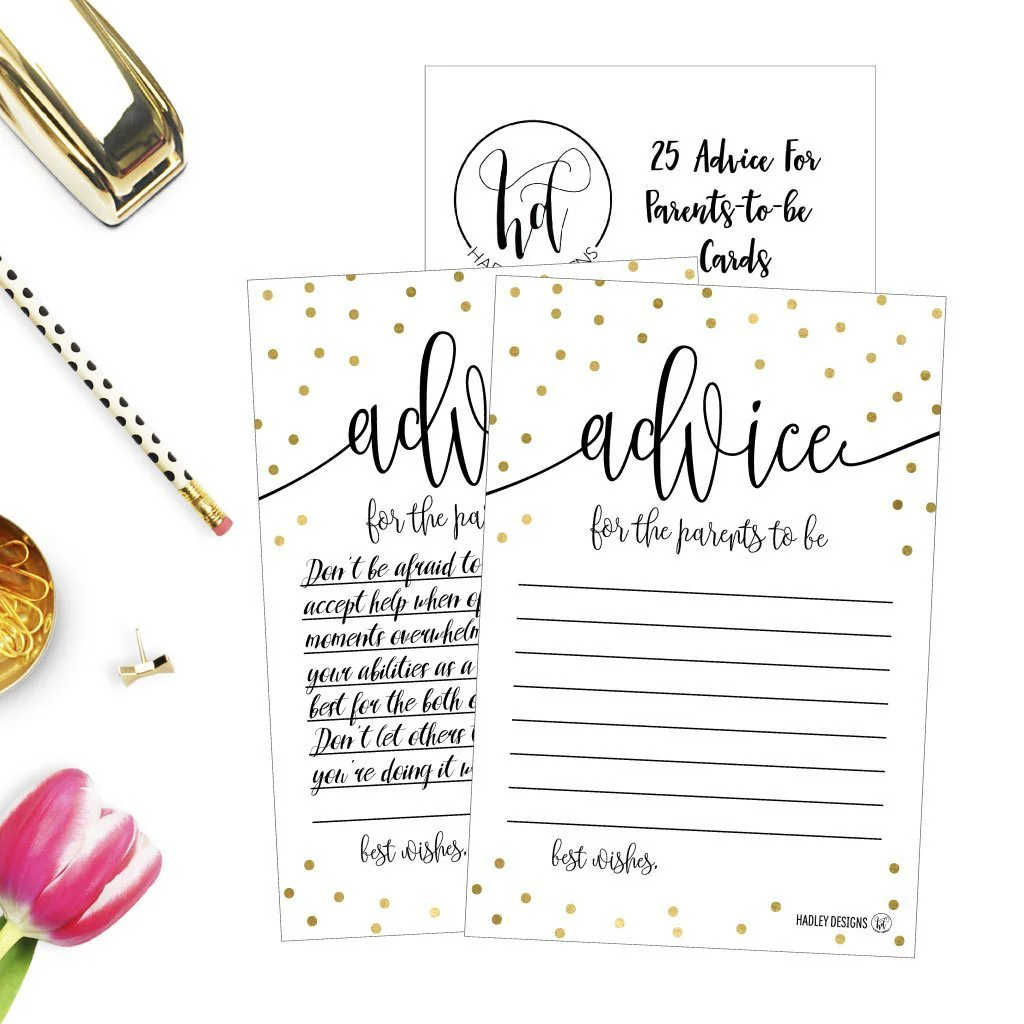 hd
25 Advice For
Parents-to-be
Cards
adv
for the pa
Don't be afraid to
accept help when
moments overwhelm
your abilities as a
best for the both
Don't let others
you're doing it
best wishes,
advice
for the parents to be
best wishes,
HADLEY DESIGNS hd